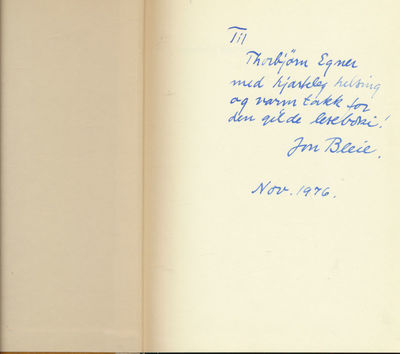 Til
Thorbjørn Egner
med hjarteleg helsing
og varm takk for
den gilde leseboki!
Jon Bleie.
Nov. 1976.